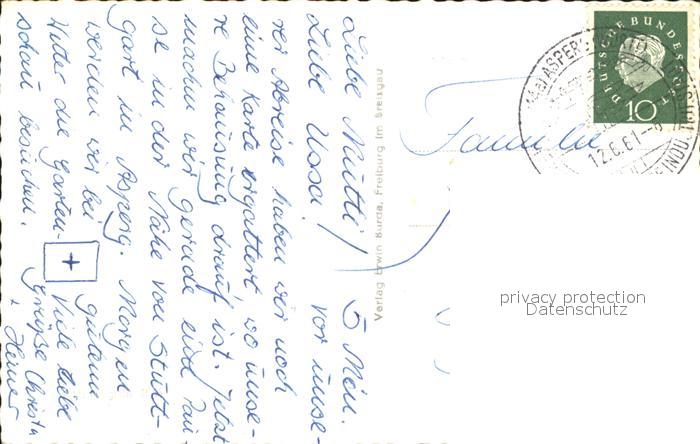 Liebe Mutti! 5 Min.
Liebe Ussa! vor unse-
rer Abreise haben wir noch
eine Karte ergattert, wo unse-
re Behausung drauf ist. Jetzt
machen wir gerade eine Pau-
se in der Nähe von Stutt-
gart in Asperg. Morgen
werden wir bei gutem
Wetter die Garten-
schau besuchen.
+
Viele liebe
Grüße Christa
+ Heiner
Verlag Erwin Burda, Freiburg im Breisgau
DEUTSCHE BUNDESPOST
10
ASPERG
12.6.61-8
Familie
privacy protection
Datenschutz